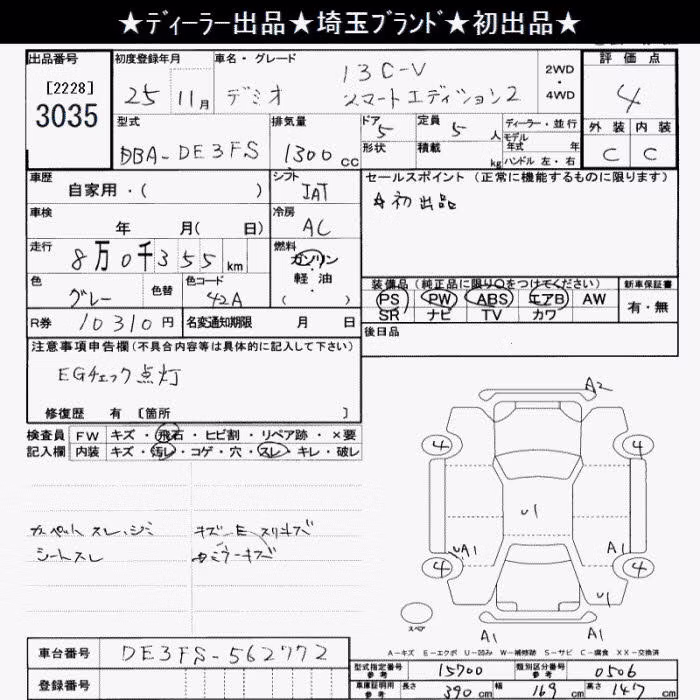 ★ディーラー出品★埼玉ブランド★初出品★
出品番号
[2228]
3035
初度登録年月
25年11月
車名・グレード
デミオ
13C-V
スマートエディション2
2WD・4WD
評価点
4
外装 内装
C C
型式
DBA-DE3FS
排気量
1300cc
ドア
5
形状
定員
5人
積載
kg
ディーラー・並行
モデル年式 年
ハンドル 左・右
車歴
自家用・( )
シフト
IAT
車検
年 月( 日)
冷房
AC
走行
8万0千355km
燃料
ガソリン・軽油・( )
色
グレー
色替
色コード
42A
R券
10310円
名変通知期限 月 日
セールスポイント(正常に機能するものに限ります)
☆初出品
装備品(純正品に限り○をつけてください)
PS PW ABS エアB AW
SR ナビ TV カワ
新車保証書
有・無
後日品
注意事項申告欄(不具合内容等は具体的に記入して下さい)
EGチェック点灯
修復歴 有 [箇所 ]
検査員記入欄
FW キズ・飛石・ヒビ割・リペア跡・×要
内装 キズ・汚レ・コゲ・穴・スレ・キレ・破レ
カーペットスレ、シミ
シートスレ
キズ-E-スリキズ
ミラーキズ
A2
4 4
U1
UA1 A1
4 4
U1
A1 A1
スペア
A-キズ E-エクボ U-凹み W-補修跡 S-サビ C-腐食 XX-交換済
車台番号
DE3FS-562772
登録番号
型式指定番号参考
15700
類別区分番号参考
0506
車庫証明用参考
長さ 390cm 幅 169cm 高さ 147cm